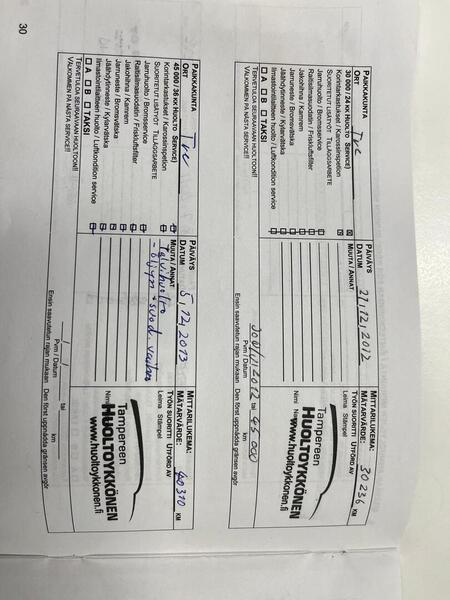 PAIKKAKUNTA
ORT
Tre
PÄIVÄYS
DATUM 27,12,2012
MITTARILUKEMA:
MÄTARVÄRDE: 30236 KM
30 000 / 24 KK HUOLTO SERVICE)
Korintarkastukset / Karossinspetion
SUORITETUT LISÄTYÖT TILLÄGGSARBETE
Jarruhuolto / Bromsservice
Raitisilmasuodatin / Friskluftsfilter
Jakohihna / Kamrem
Jarruneste / Bromsvätska
Jäähdytinneste / Kylarvätska
Ilmastointilaitteen huolto / Luftkondition service
A B TAKSI
TERVETULOA SEURAAVAAN HUOLTOON!!!
VÄLKOMMEN PÅ NÄSTA SERVICE!!!
MUUTA / ANNAT
TYÖN SUORITTI UTFÖRD AV
Leima Stämpel
Tampereen
HUOLTOYKKÖNEN
www.huoltoykkonen.fi
Nimi
tai 45 000
Pvm / Datum km
Ensin saavutetun rajan mukaan Den först uppnådda gränsen avgör
PAIKKAKUNTA
ORT
Tre
PÄIVÄYS
DATUM 5,12,2013
MITTARILUKEMA:
MÄTARVÄRDE: 40310 KM
45 000 / 36 KK HUOLTO SERVICE)
Korintarkastukset / Karossinspetion
SUORITETUT LISÄTYÖT TILLÄGGSARBETE
Jarruhuolto / Bromsservice
Raitisilmasuodatin / Friskluftsfilter
Jakohihna / Kamrem
Jarruneste / Bromsvätska
Jäähdytinneste / Kylarvätska
Ilmastointilaitteen huolto / Luftkondition service
A B TAKSI
TERVETULOA SEURAAVAAN HUOLTOON!!!
VÄLKOMMEN PÅ NÄSTA SERVICE!!!
MUUTA / ANNAT
Talvihuolto
- öljyn + suod. vaihto
TYÖN SUORITTI UTFÖRD AV
Leima Stämpel
Tampereen
HUOLTOYKKÖNEN
www.huoltoykkonen.fi
Nimi
/ / tai
Pvm / Datum km
Ensin saavutetun rajan mukaan Den först uppnådda gränsen avgör
30